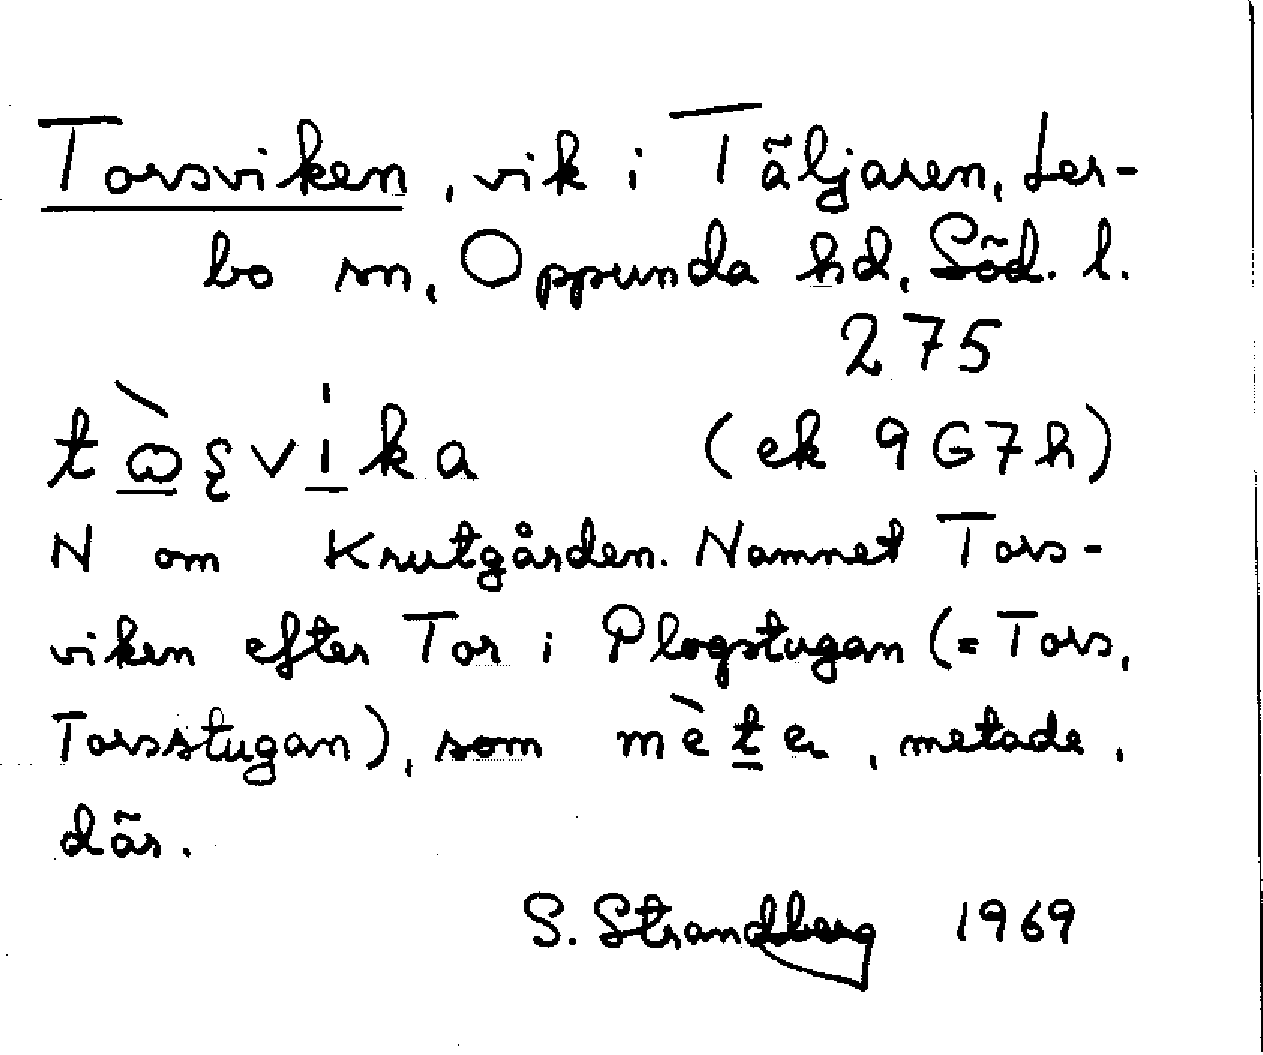 Torsviken, vik i Täljaren, Ler-
bo sn, Oppunda hd, Söd. l.
275
(ek 9G7h)
N om Krutgården. Namnet Tors-
viken efter Tor i Plogstugan (= Tors,
Torsstugan), som mètеr, metade,
där.
S. Strandberg 1969